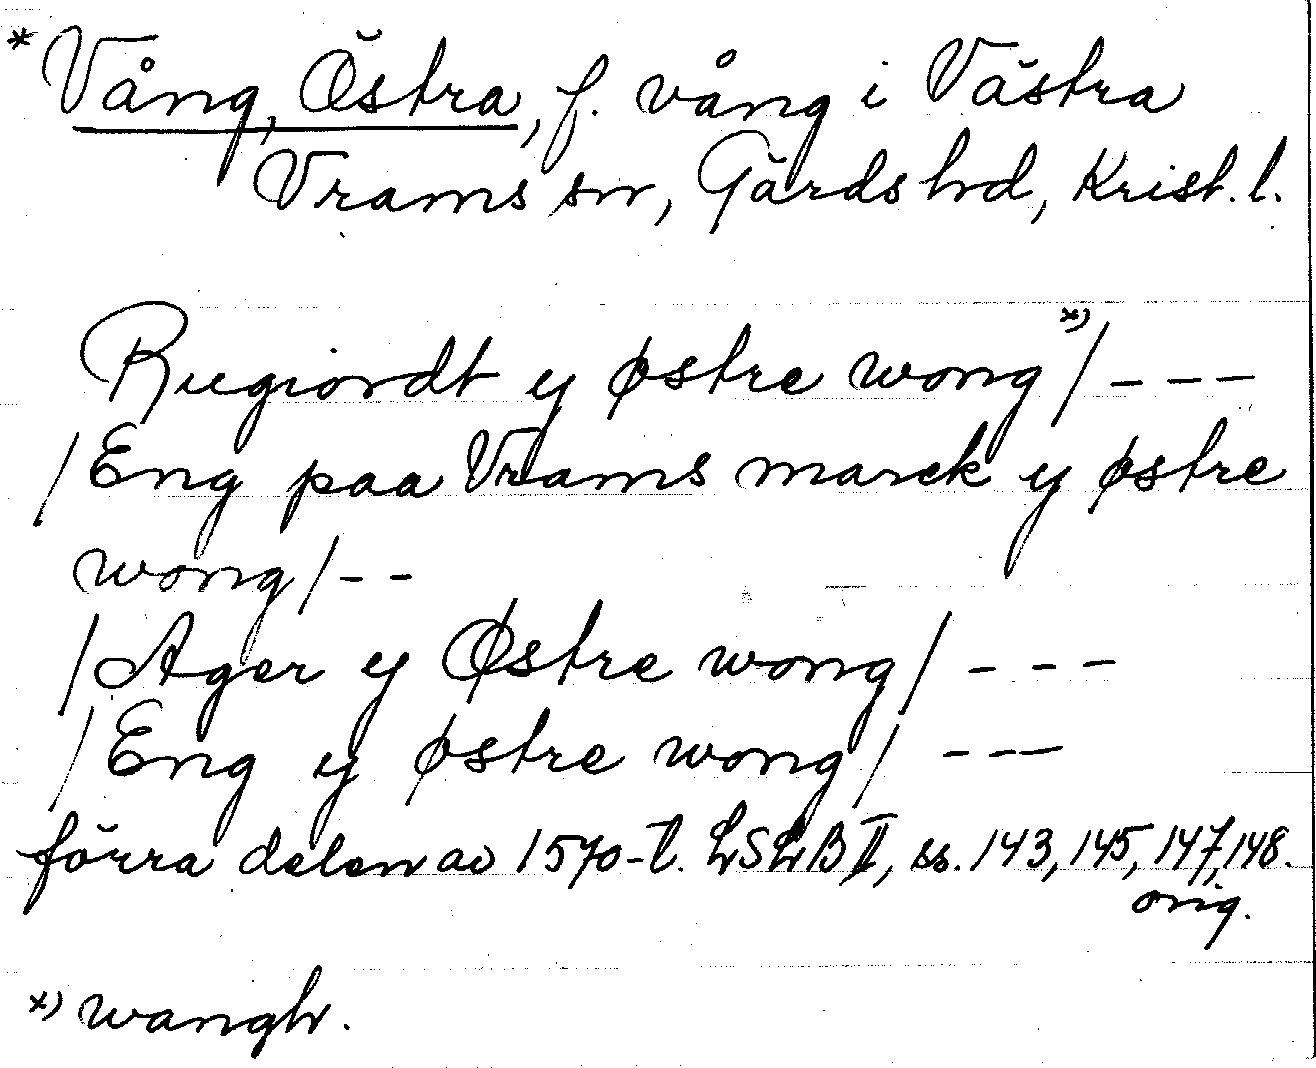 * Vång, Östra, f. vång i Västra
Vrams sn, Gärds hd, Krist. l.
Rugiordt y østre wong x) / - - -
/ Eng paa Vrams marck y østre
wong / - -
/ Ager y Østre wong / - - -
/ Eng y østre wong / - - -
förra delen av 1570-t. LSLB II, ss. 143, 145, 147, 148.
orig.
x) wangh.